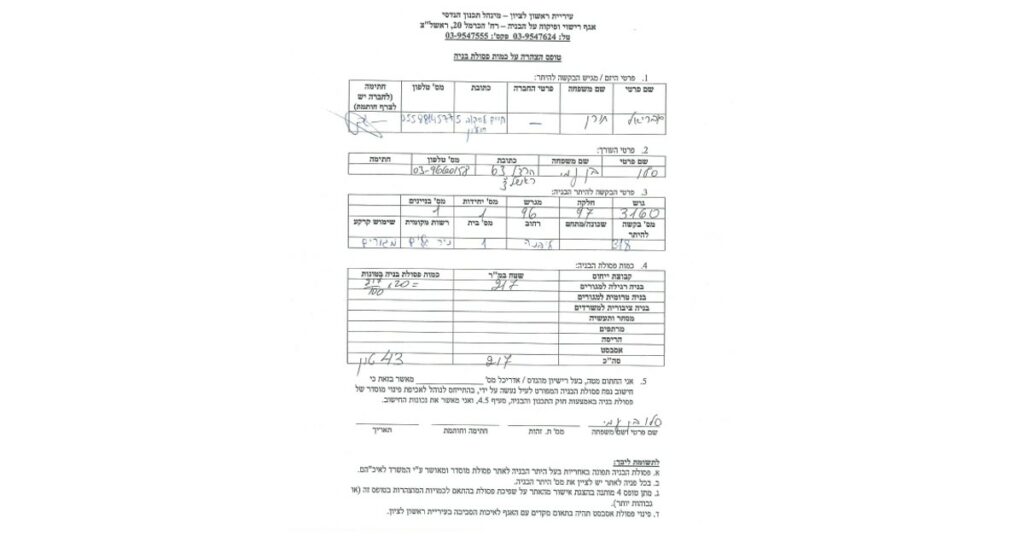 עיריית ראשון לציון – מינהל תכנון הנדסי
אגף רישוי ופיקוח על הבניה – רח' הכרמל 20, ראשל"צ
טל: 03-9547624 פקס': 03-9547555
טופס הצהרה על כמות פסולת בניה
1. פרטי היזם / מגיש הבקשה להיתר:
שם פרטי שם משפחה פרטי החברה כתובת מס' טלפון חתימה (לחברה יש לצרף חותמת)
גבריאל חורן — חיים
2. פרטי העורך:
שם פרטי שם משפחה כתובת מס' טלפון חתימה
סלו בן עמי הרצל 63 ראשל"צ 03-9660158
3. פרטי הבקשה להיתר הבניה:
גוש חלקה מגרש מס' יחידות מס' בניינים
3160 97 96 1 1
מס' בקשה להיתר שכונה/מתחם רחוב מס' בית רשות מקומית שימוש קרקע
1 מגורים
4. כמות פסולת הבניה:
קבוצת ייחוס שטח במ"ר כמות פסולת בניה בטונות
בניה רגילה למגורים 217 217/100 · 20 =
בניה טרומית למגורים
בניה ציבורית למשרדים
מסחר ותעשיה
מרתפים
הריסה
אסבסט
סה"כ 217 43 טון
5. אני החתום מטה, בעל רישיון מהנדס / אדריכל מס' ________ מאשר בזאת כי
חישוב נפח פסולת הבניה המפורט לעיל נעשה על ידי, בהתייחס לנוהל לאכיפת פינוי מוסדר של
פסולת בניה באמצעות חוק התכנון והבניה, סעיף 4.5, ואני מאשר את נכונות החישוב.
סלו בן עמי
שם פרטי ושם משפחה מס' ת. זהות חתימה וחותמת תאריך
לתשומת ליבך:
א. פסולת הבניה תפונה באחריות בעל היתר הבניה לאתר פסולת מוסדר ומאושר ע"י המשרד לאיכ"הס.
ב. בכל פניה לאתר יש לציין את מס' היתר הבניה.
ג. מתן טופס 4 מותנה בהצגת אישור מהאתר על שפיכת פסולת בהתאם לכמויות המוצהרות בטופס זה (או
גבוהות יותר).
ד. פינוי פסולת אסבסט תהיה בתאום מקדים עם האגף לאיכות הסביבה בעיריית ראשון לציון.